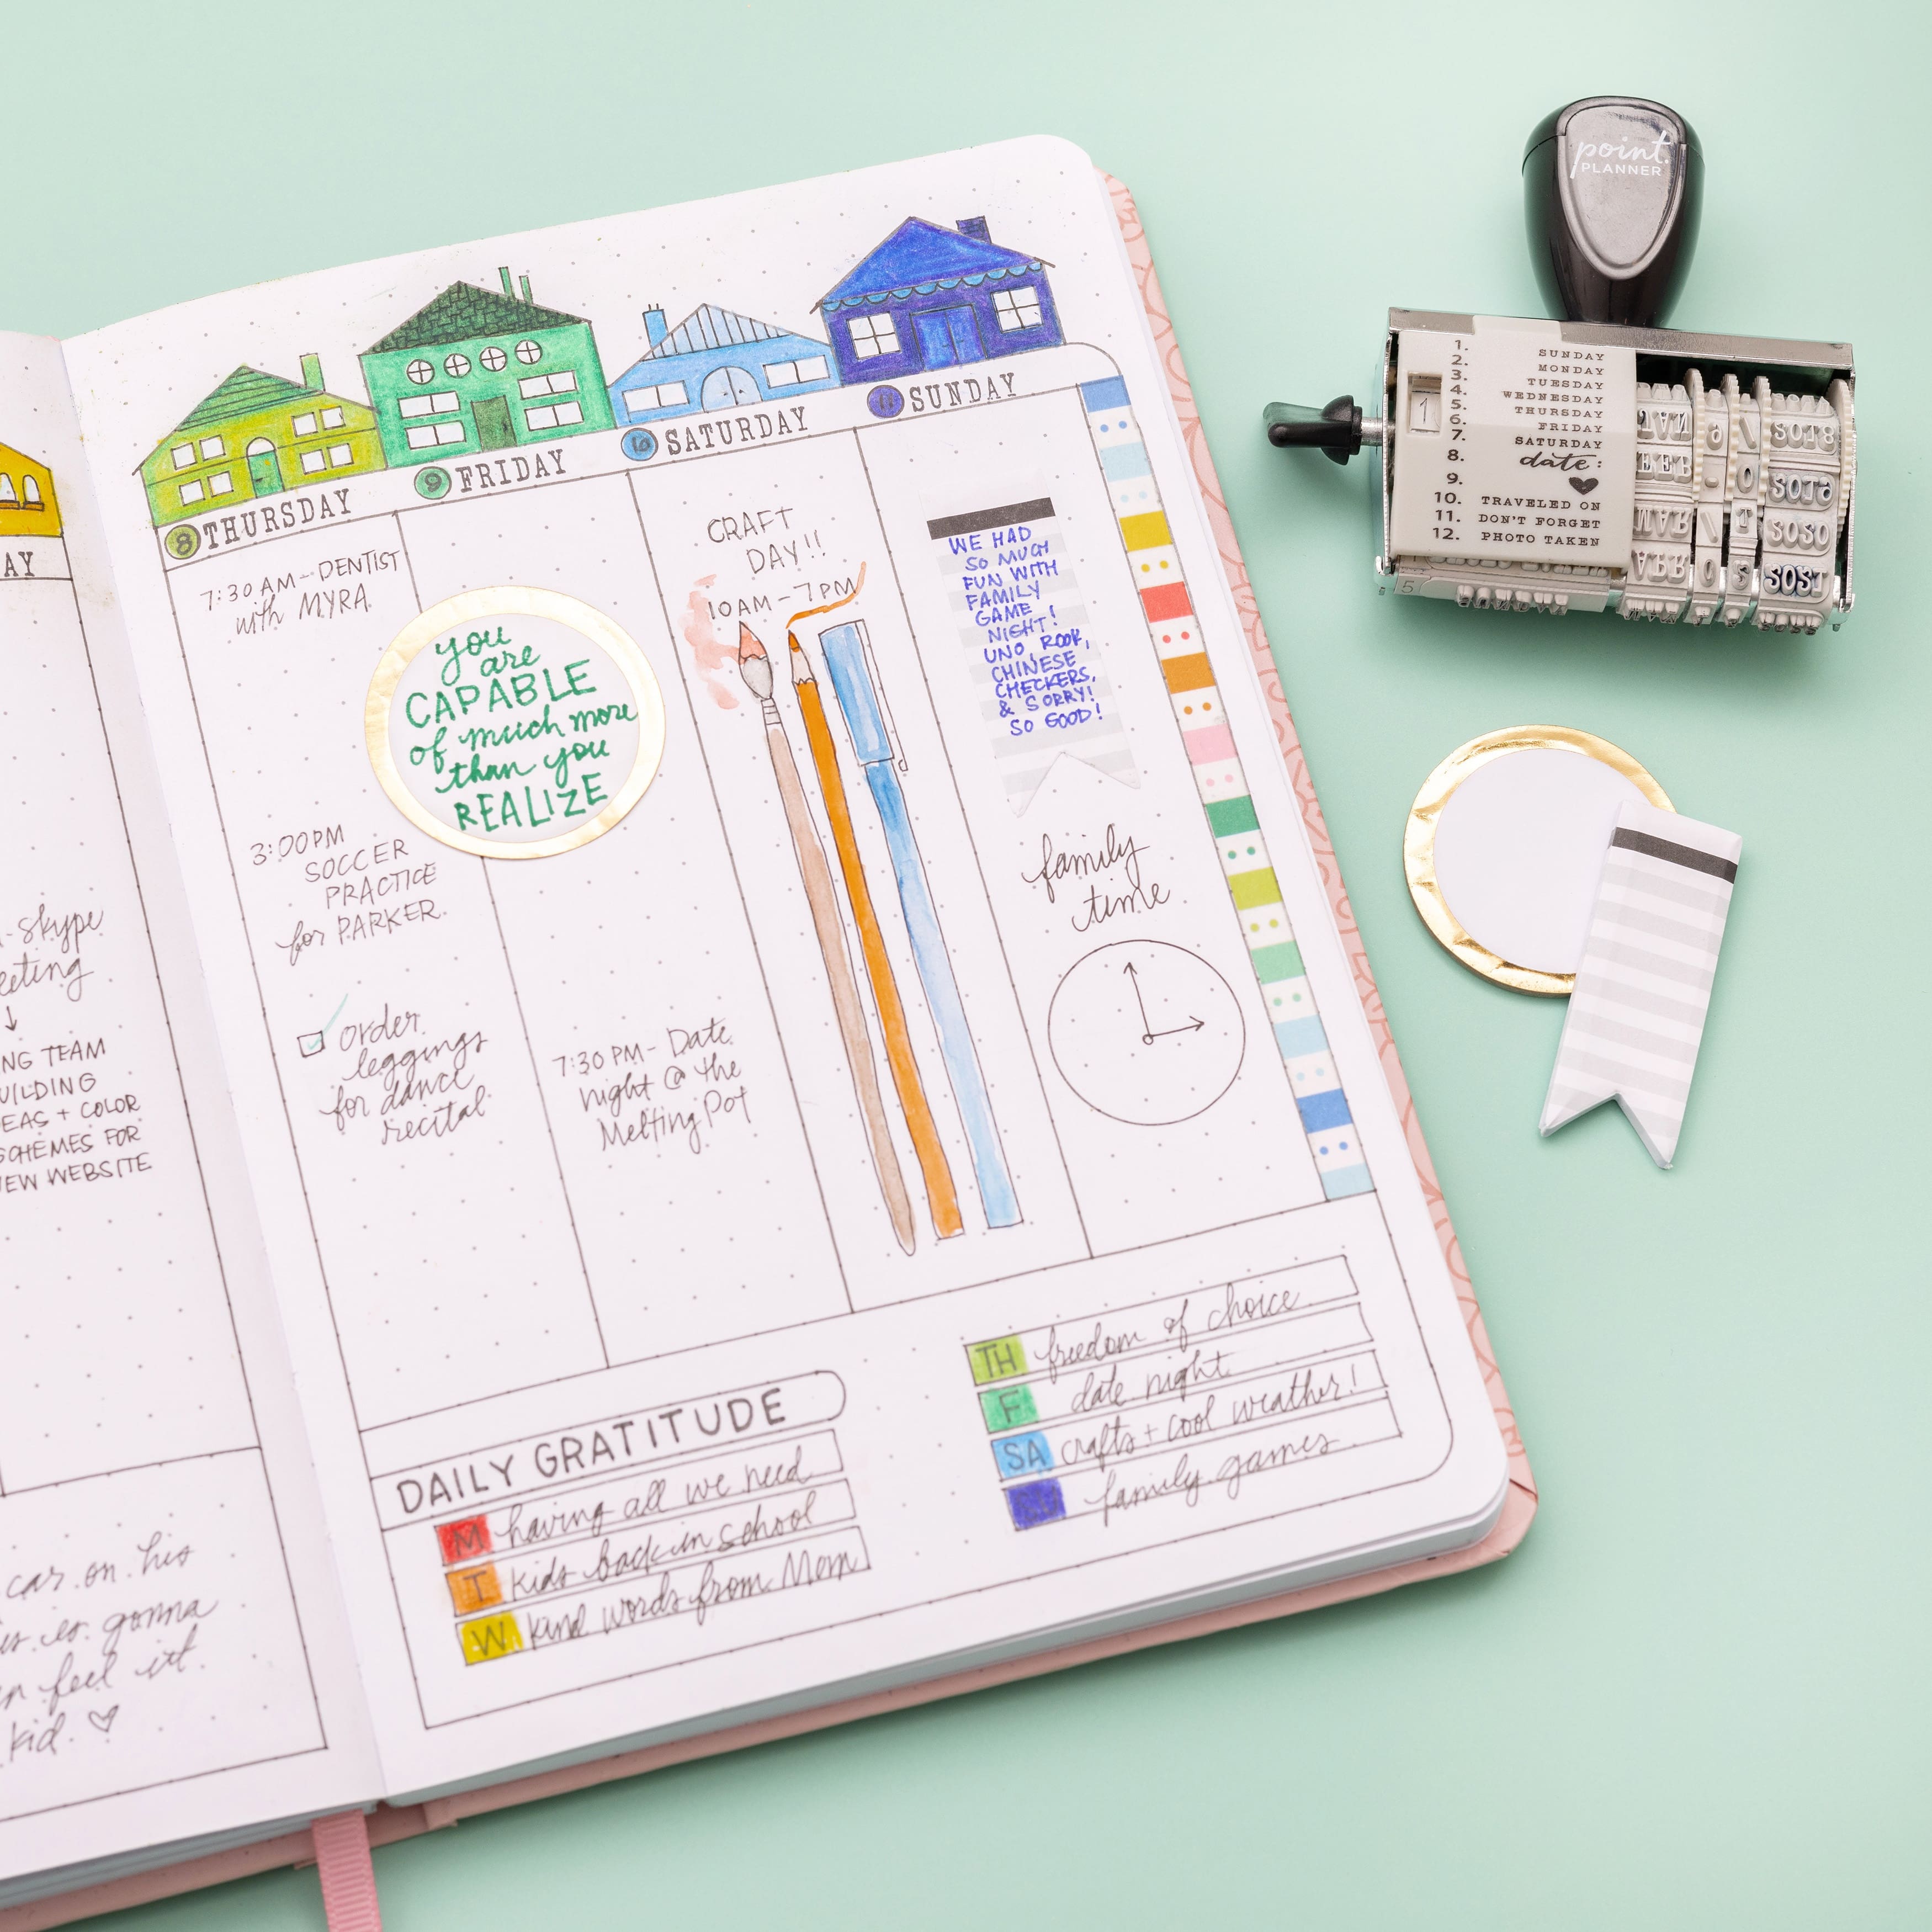 AY
Skype
eting
NG TEAM
UILDING
EAS + COLOR
SCHEMES FOR
EW WEBSITE
car on his
gonna
n feel it.
kid. ♡
8 THURSDAY
7:30 AM - DENTIST
with MYRA
3:00PM
SOCCER
PRACTICE
for PARKER.
order
leggings
for dance
recital
9 FRIDAY
you
are
CAPABLE
of much more
than you
REALIZE
7:30 PM - Date
night @ the
Melting Pot
10 SATURDAY
CRAFT
DAY!!
10AM - 7PM
11 SUNDAY
WE HAD
SO MUCH
FUN WITH
FAMILY
GAME
NIGHT!
UNO, ROOK,
CHINESE
CHECKERS,
& SORRY!
SO GOOD!
family
time
DAILY GRATITUDE
M having all we need
T kids back in school
W kind words from Mom
TH freedom of choice
F date night
SA crafts + cool weather!
SU family games
point
PLANNER
1. SUNDAY
2. MONDAY
3. TUESDAY
4. WEDNESDAY
5. THURSDAY
6. FRIDAY
7. SATURDAY
8. date:
9. ♥
10. TRAVELED ON
11. DON'T FORGET
12. PHOTO TAKEN
1
5